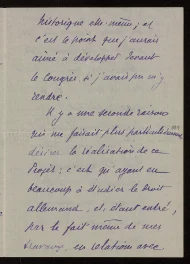 historique elle-même ; et
c'est le point que j'aurais
aimé à développer devant
le Congrès si j'avais pu m'y
rendre.
Il y a une seconde raison
qui me faisait plus particulièrement
désirer la réalisation de ce
Projet ; c'est qu'ayant eu
beaucoup à étudier le droit
allemand, et, étant entré,
par le fait même de mes
travaux, en relations avec